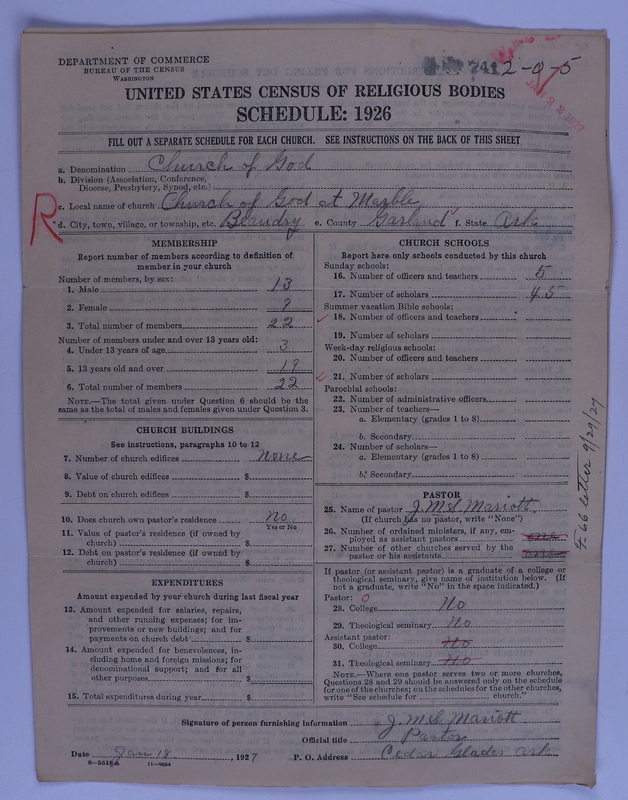 DEPARTMENT OF COMMERCE
BUREAU OF THE CENSUS
WASHINGTON
741 2-0-5
UNITED STATES CENSUS OF RELIGIOUS BODIES
SCHEDULE: 1926
FILL OUT A SEPARATE SCHEDULE FOR EACH CHURCH. SEE INSTRUCTIONS ON THE BACK OF THIS SHEET
a. Denomination Church of God
b. Division (Association, Conference,
Diocese, Presbytery, Synod, etc.)
c. Local name of church Church of God at Marble
R
d. City, town, village, or township, etc. Beaudry e. County Garland f. State Ark.
MEMBERSHIP
Report number of members according to definition of
member in your church
Number of members, by sex:
1. Male 13
2. Female 9
3. Total number of members 22
Number of members under and over 13 years old:
4. Under 13 years of age 3
5. 13 years old and over 19
6. Total number of members 22
NOTE.—The total given under Question 6 should be the
same as the total of males and females given under Question 3.
CHURCH BUILDINGS
See instructions, paragraphs 10 to 12
7. Number of church edifices None
8. Value of church edifices $
9. Debt on church edifices $
10. Does church own pastor's residence No
Yes or No
11. Value of pastor's residence (if owned by
church) $
12. Debt on pastor's residence (if owned by
church) $
EXPENDITURES
Amount expended by your church during last fiscal year
13. Amount expended for salaries, repairs,
and other running expenses; for im-
provements or new buildings; and for
payments on church debt $
14. Amount expended for benevolences, in-
cluding home and foreign missions; for
denominational support; and for all
other purposes $
15. Total expenditures during year $
CHURCH SCHOOLS
Report here only schools conducted by this church
Sunday schools:
16. Number of officers and teachers 5
17. Number of scholars 45
Summer vacation Bible schools:
18. Number of officers and teachers
19. Number of scholars
Week-day religious schools:
20. Number of officers and teachers
21. Number of scholars
Parochial schools:
22. Number of administrative officers
23. Number of teachers—
a. Elementary (grades 1 to 8)
b. Secondary
24. Number of scholars—
a. Elementary (grades 1 to 8)
b. Secondary
PASTOR
25. Name of pastor J. M. S. Mariott
(If church has no pastor, write "None")
26. Number of ordained ministers, if any, em-
ployed as assistant pastors
27. Number of other churches served by the
pastor or his assistants
If pastor (or assistant pastor) is a graduate of a college or
theological seminary, give name of institution below. (If
not a graduate, write "No" in the space indicated.)
Pastor: 0
28. College No
29. Theological seminary No
Assistant pastor:
30. College No
31. Theological seminary No
NOTE.—Where one pastor serves two or more churches,
Questions 28 and 29 should be answered only on the schedule
for one of the churches; on the schedules for the other churches,
write "See schedule for church."
F-66 letter 9/29/27
Signature of person furnishing information J. M. S. Mariott
Official title Pastor
Date Jan 18, 1927 P. O. Address Cedar Glades Ark
8-551BA 11-9084